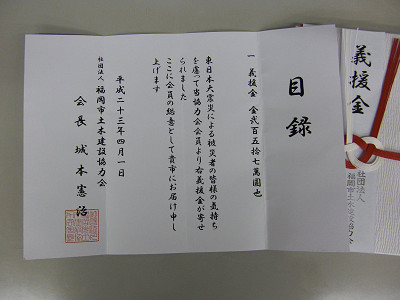 目録
一 義援金 金弐百五拾七萬圓也
東日本大震災による被災者の皆様の気持ち
を慮って当協力会会員より右義援金が寄せ
られました
ここに会員の総意として貴市にお届け申し
上げます
平成二十三年四月一日
社団法人 福岡市土木建設協力会
会長 城本憲治
義援金
社団法人
福岡市土木建設協力会